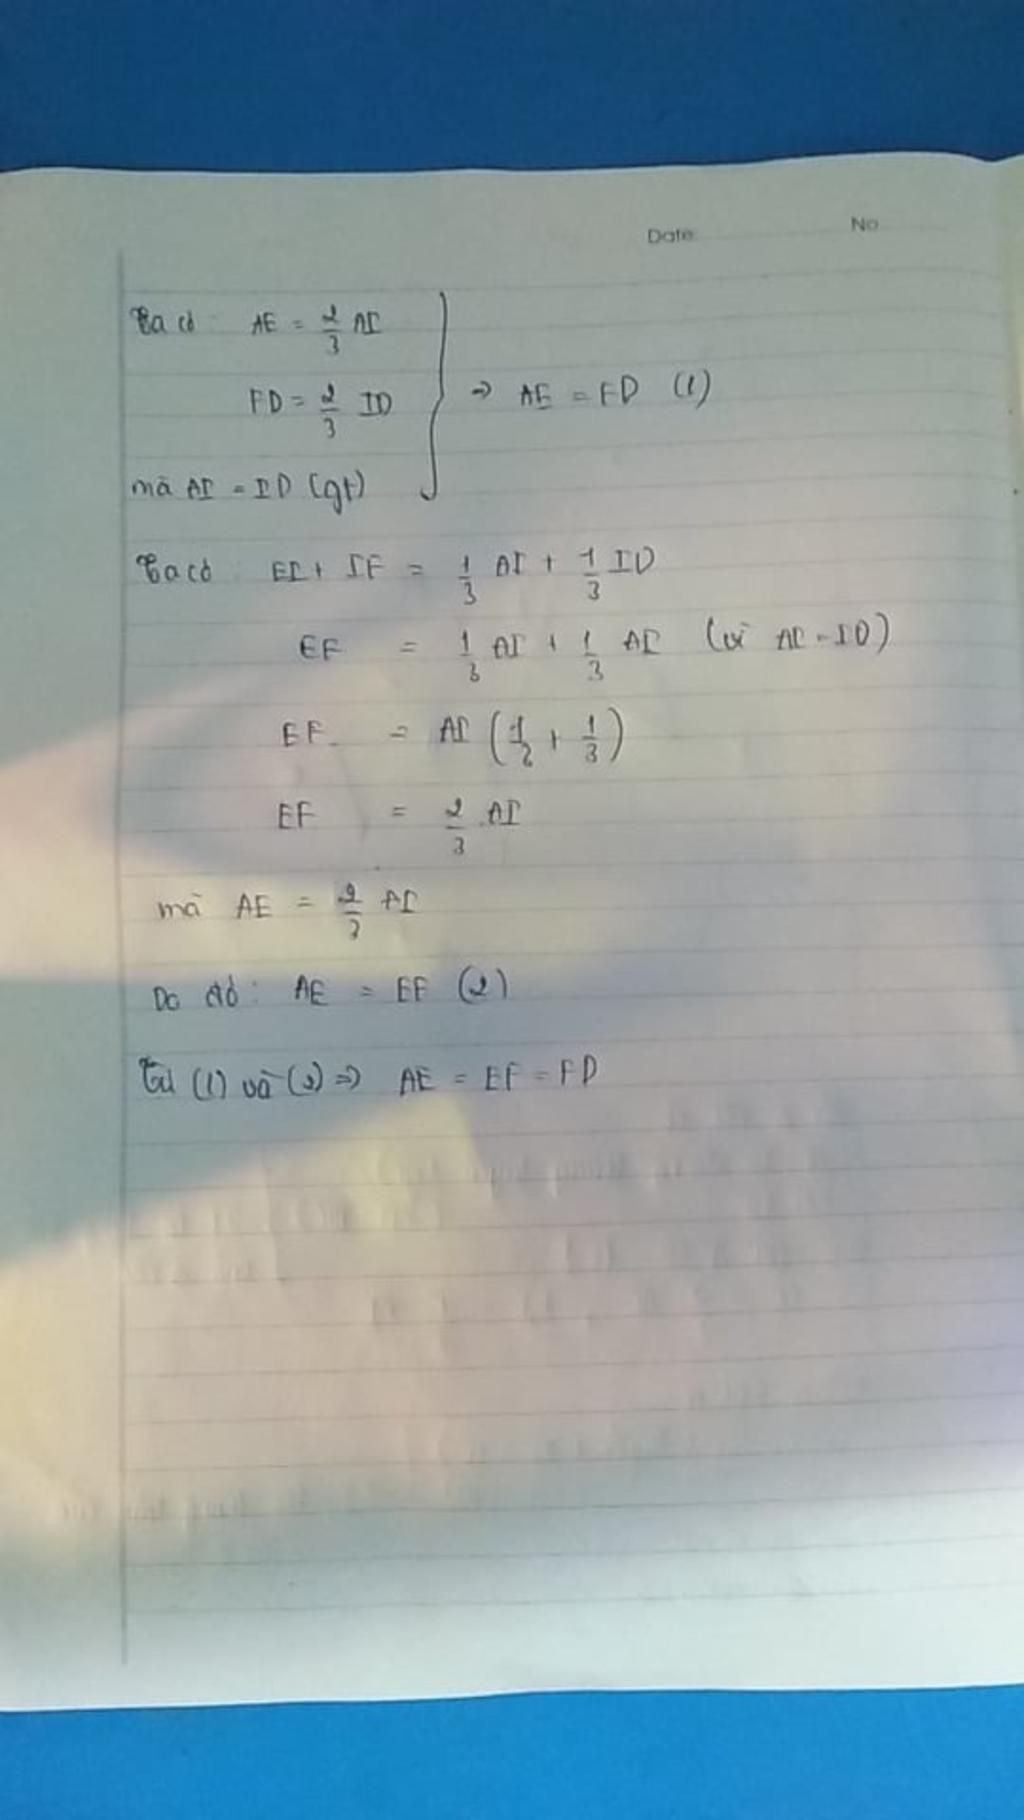 Date: No
Ta có: AE = 2/3 AI
FD = 2/3 ID
⇒ AE = FD (1)
mà AI = ID (gt)
Ta có: EI + IF = 1/3 AI + 1/3 ID
EF = 1/3 AI + 1/3 AI (vì AI = ID)
EF = AI (1/3 + 1/3)
EF = 2/3 AI
mà AE = 2/3 AI
Do đó: AE = EF (2)
Từ (1) và (2) ⇒ AE = EF = FD